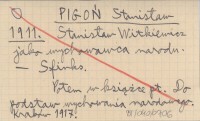 PIGOŃ Stanisław
1911. Stanisław Witkiewicz
jako wychowawca narodu.
— Sfinks.
Potem w książce pt. Do
podstaw wychowania narodowego.
Kraków 1917.